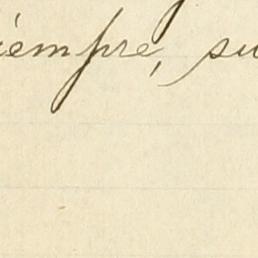 siempre, su